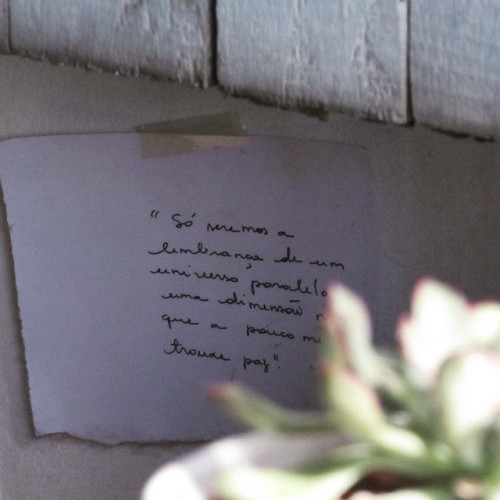 "Só seremos a
lembrança de um
universo paralelo
uma dimensão
que a pouco me
trouxe paz".